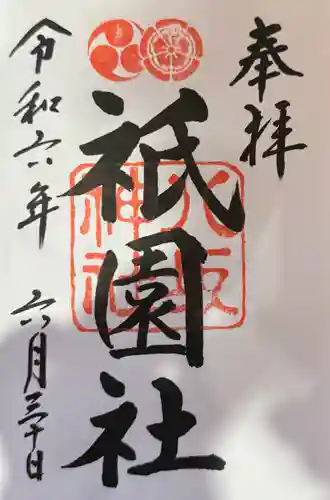 奉拝
祇園社
八坂
神社
令和六年 六月三十日